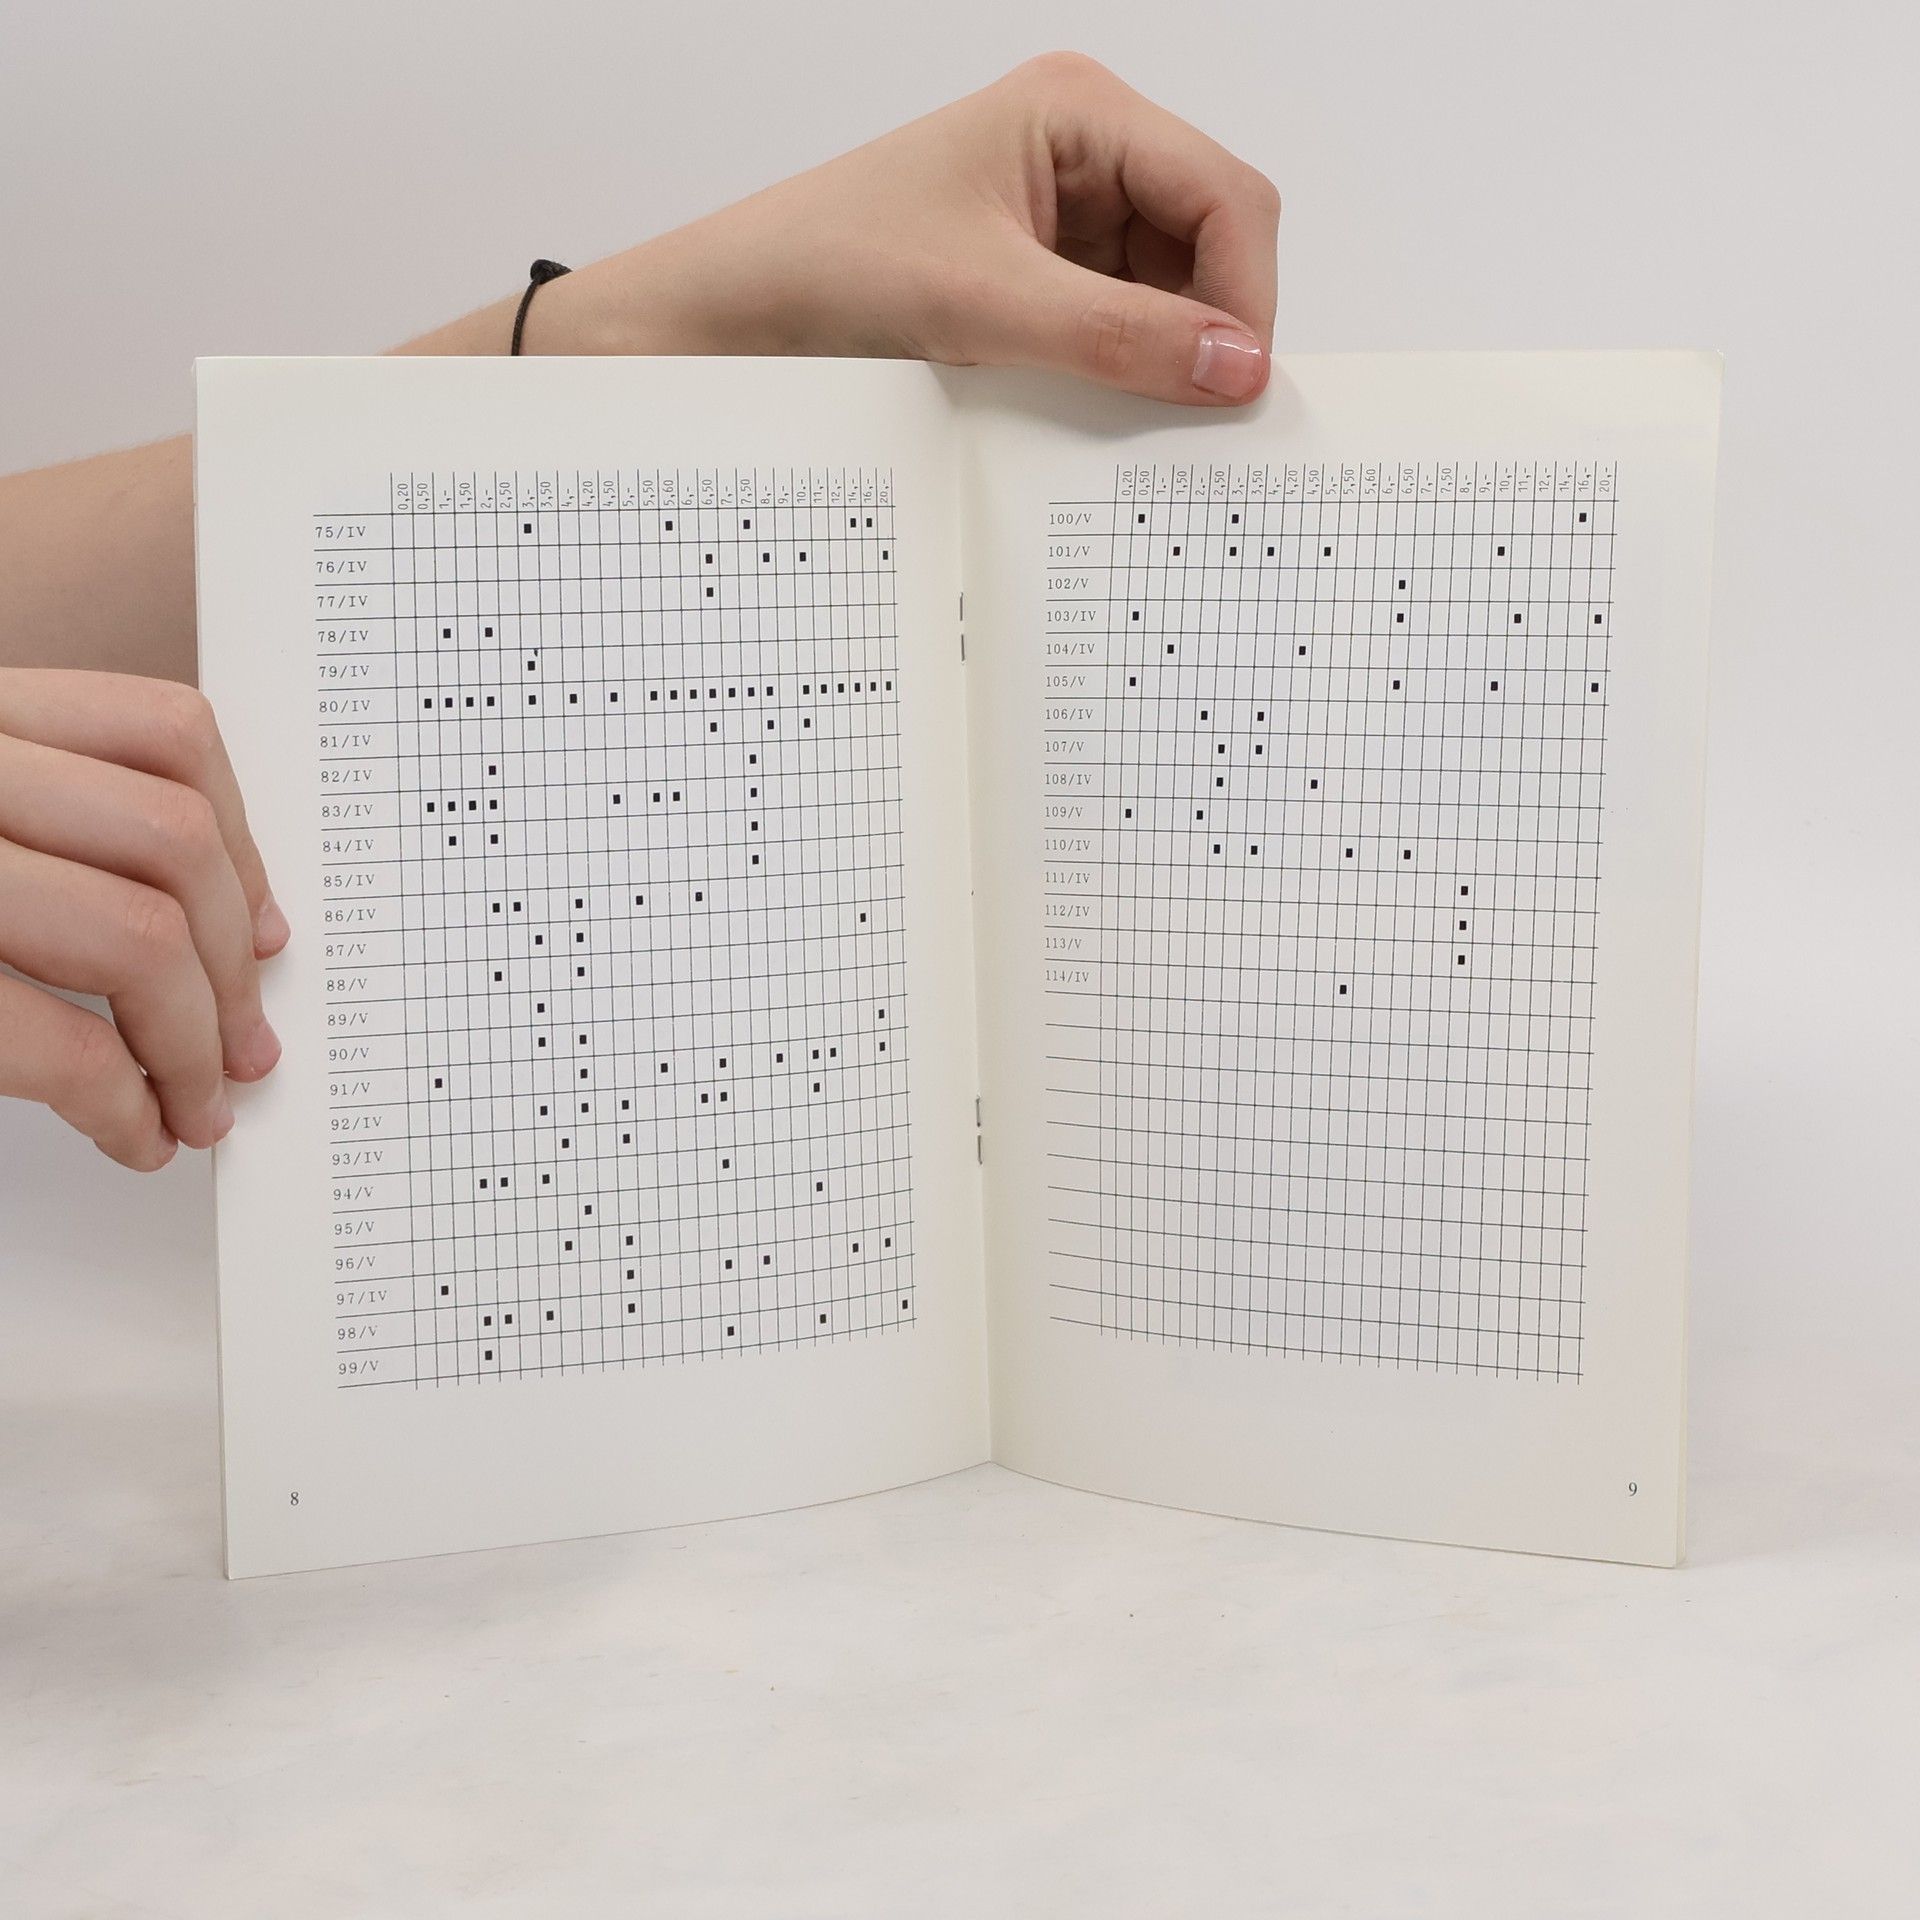 0,20 0,50 1,- 1,50 2,- 2,50 3,- 3,50 4,- 4,20 4,50 5,- 5,50 5,60 6,- 6,50 7,- 7,50 8,- 9,- 10.- 11,- 12,- 14,- 16,- 20,-
75/IV
76/IV
77/IV
78/IV
79/IV
80/IV
81/IV
82/IV
83/IV
84/IV
85/IV
86/IV
87/V
88/V
89/V
90/V
91/V
92/IV
93/IV
94/V
95/V
96/V
97/IV
98/V
99/V
8
0,20 0,50 1.- 1,50 2.- 2,50 3,- 3,50 4,- 4,20 4,50 5,- 5,50 5,60 6,- 6,50 7,- 7,50 8,- 9,- 10,- 11,- 12,- 14,- 16,- 20,-
100/V
101/V
102/V
103/IV
104/IV
105/V
106/IV
107/V
108/IV
109/V
110/IV
111/IV
112/IV
113/V
114/IV
9